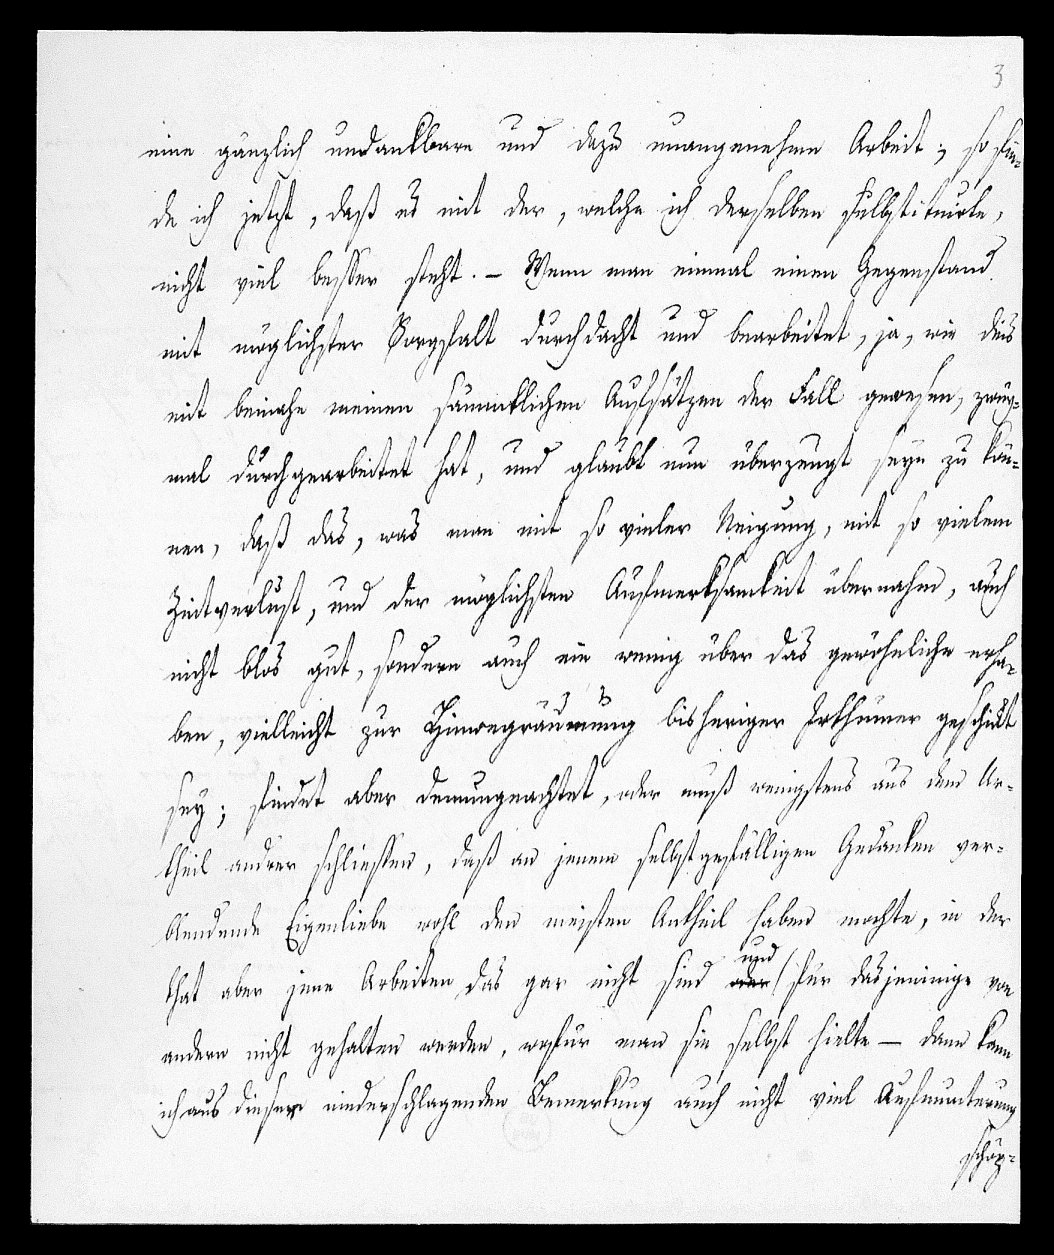 3
eine gänzlich undankbare und dazu unangenehme Arbeit; so fin-
de ich jetzt, daß es mit der, welche ich derselben substituirte,
nicht viel besser steht. – Wenn man einmal einen Gegenstand
mit möglichster Sorgfalt durchdacht und bearbeitet, ja, wie dies
mit beinahe meinen sämmtlichen Aufsätzen der Fall gewesen, zwey-
mal durchgearbeitet hat, und glaubt nun überzeugt seyn zu kön-
nen, daß das, was man mit so vieler Neigung, mit so vielem
Zeitverlust, und der möglichsten Aufmerksamkeit übernahm, auch
nicht blos gut, sondern auch ein wenig über das gewöhnliche erha-
ben, vielleicht zur Hinwegräumung bisheriger Irthümer geschikt
sey; findet aber demungeachtet, oder muß wenigstens aus dem Ur-
theil andrer schliessen, daß an jenem selbstgefälligen Gedanken ver-
blendende Eigenliebe wohl den meisten Antheil haben mochte, in der
that aber jene Arbeiten das gar nicht sind und
oder für dasjeninige von
andern nicht gehalten werden, wofür man sie selbst hielte – dann kann
ich aus dieser niederschlagenden Bemerkung auch nicht viel Aufmunterung
schöp-